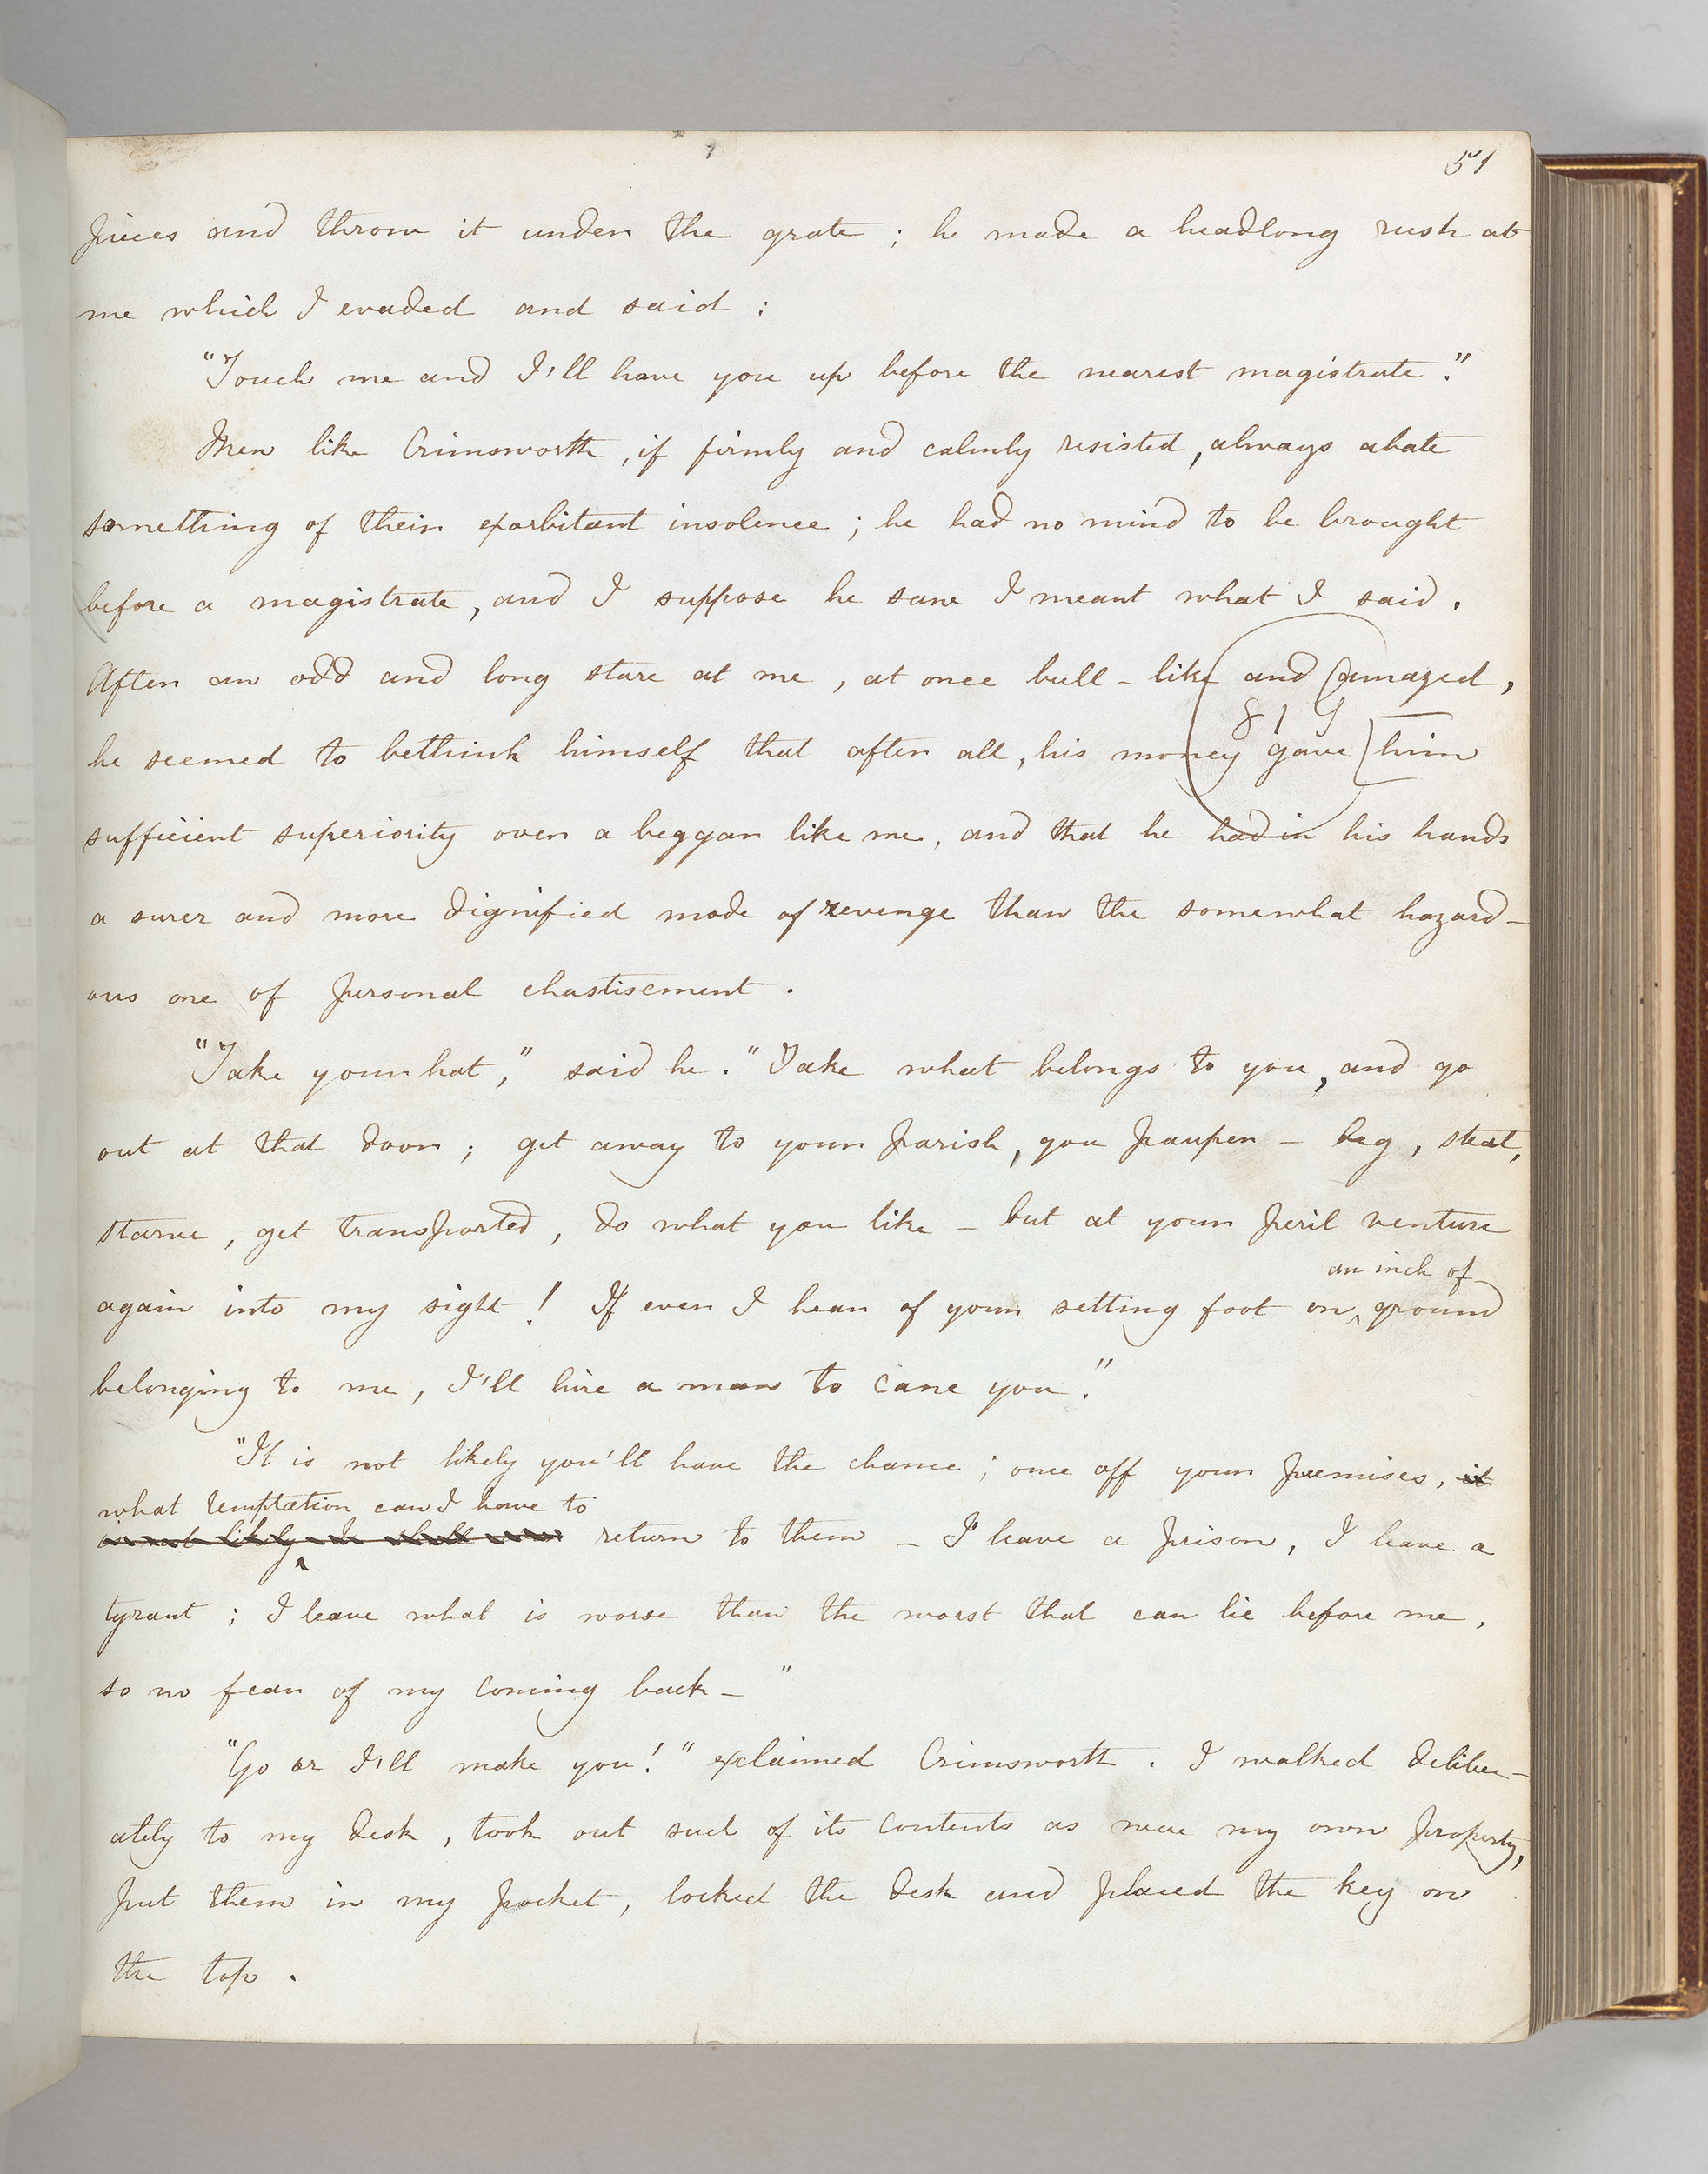 51
pieces and throw it under the grate ; he made a headlong rush at
me which I evaded and said :
"Touch me and I'll have you up before the nearest magistrate."
Men like Crimsworth, if firmly and calmly resisted, always abate
something of their exorbitant insolence ; he had no mind to be brought
before a magistrate, and I suppose he saw I meant what I said.
After an odd and long stare at me, at once bull-like and amazed,
819
he seemed to bethink himself that after all, his money gave him
sufficient superiority over a beggar like me, and that he had in his hands
a surer and more dignified mode of revenge than the somewhat hazard-
ous one of personal chastisement.
"Take your hat," said he. "Take what belongs to you, and go
out at that door ; get away to your parish, you pauper - beg, steal,
starve, get transported, do what you like - but at your peril venture
an inch of
again into my sight ! If ever I hear of your setting foot on ground
belonging to me, I'll hire a man to cane you."
"It is not likely you'll have the chance ; once off your premises, it
what temptation can I have to
is not likely I shall return to them - I leave a prison, I leave a
tyrant ; I leave what is worse than the worst that can lie before me,
so no fear of my coming back - "
"Go or I'll make you!" exclaimed Crimsworth. I walked deliber-
ately to my desk, took out such of its contents as were my own property,
put them in my pocket, locked the desk and placed the key on
the top.